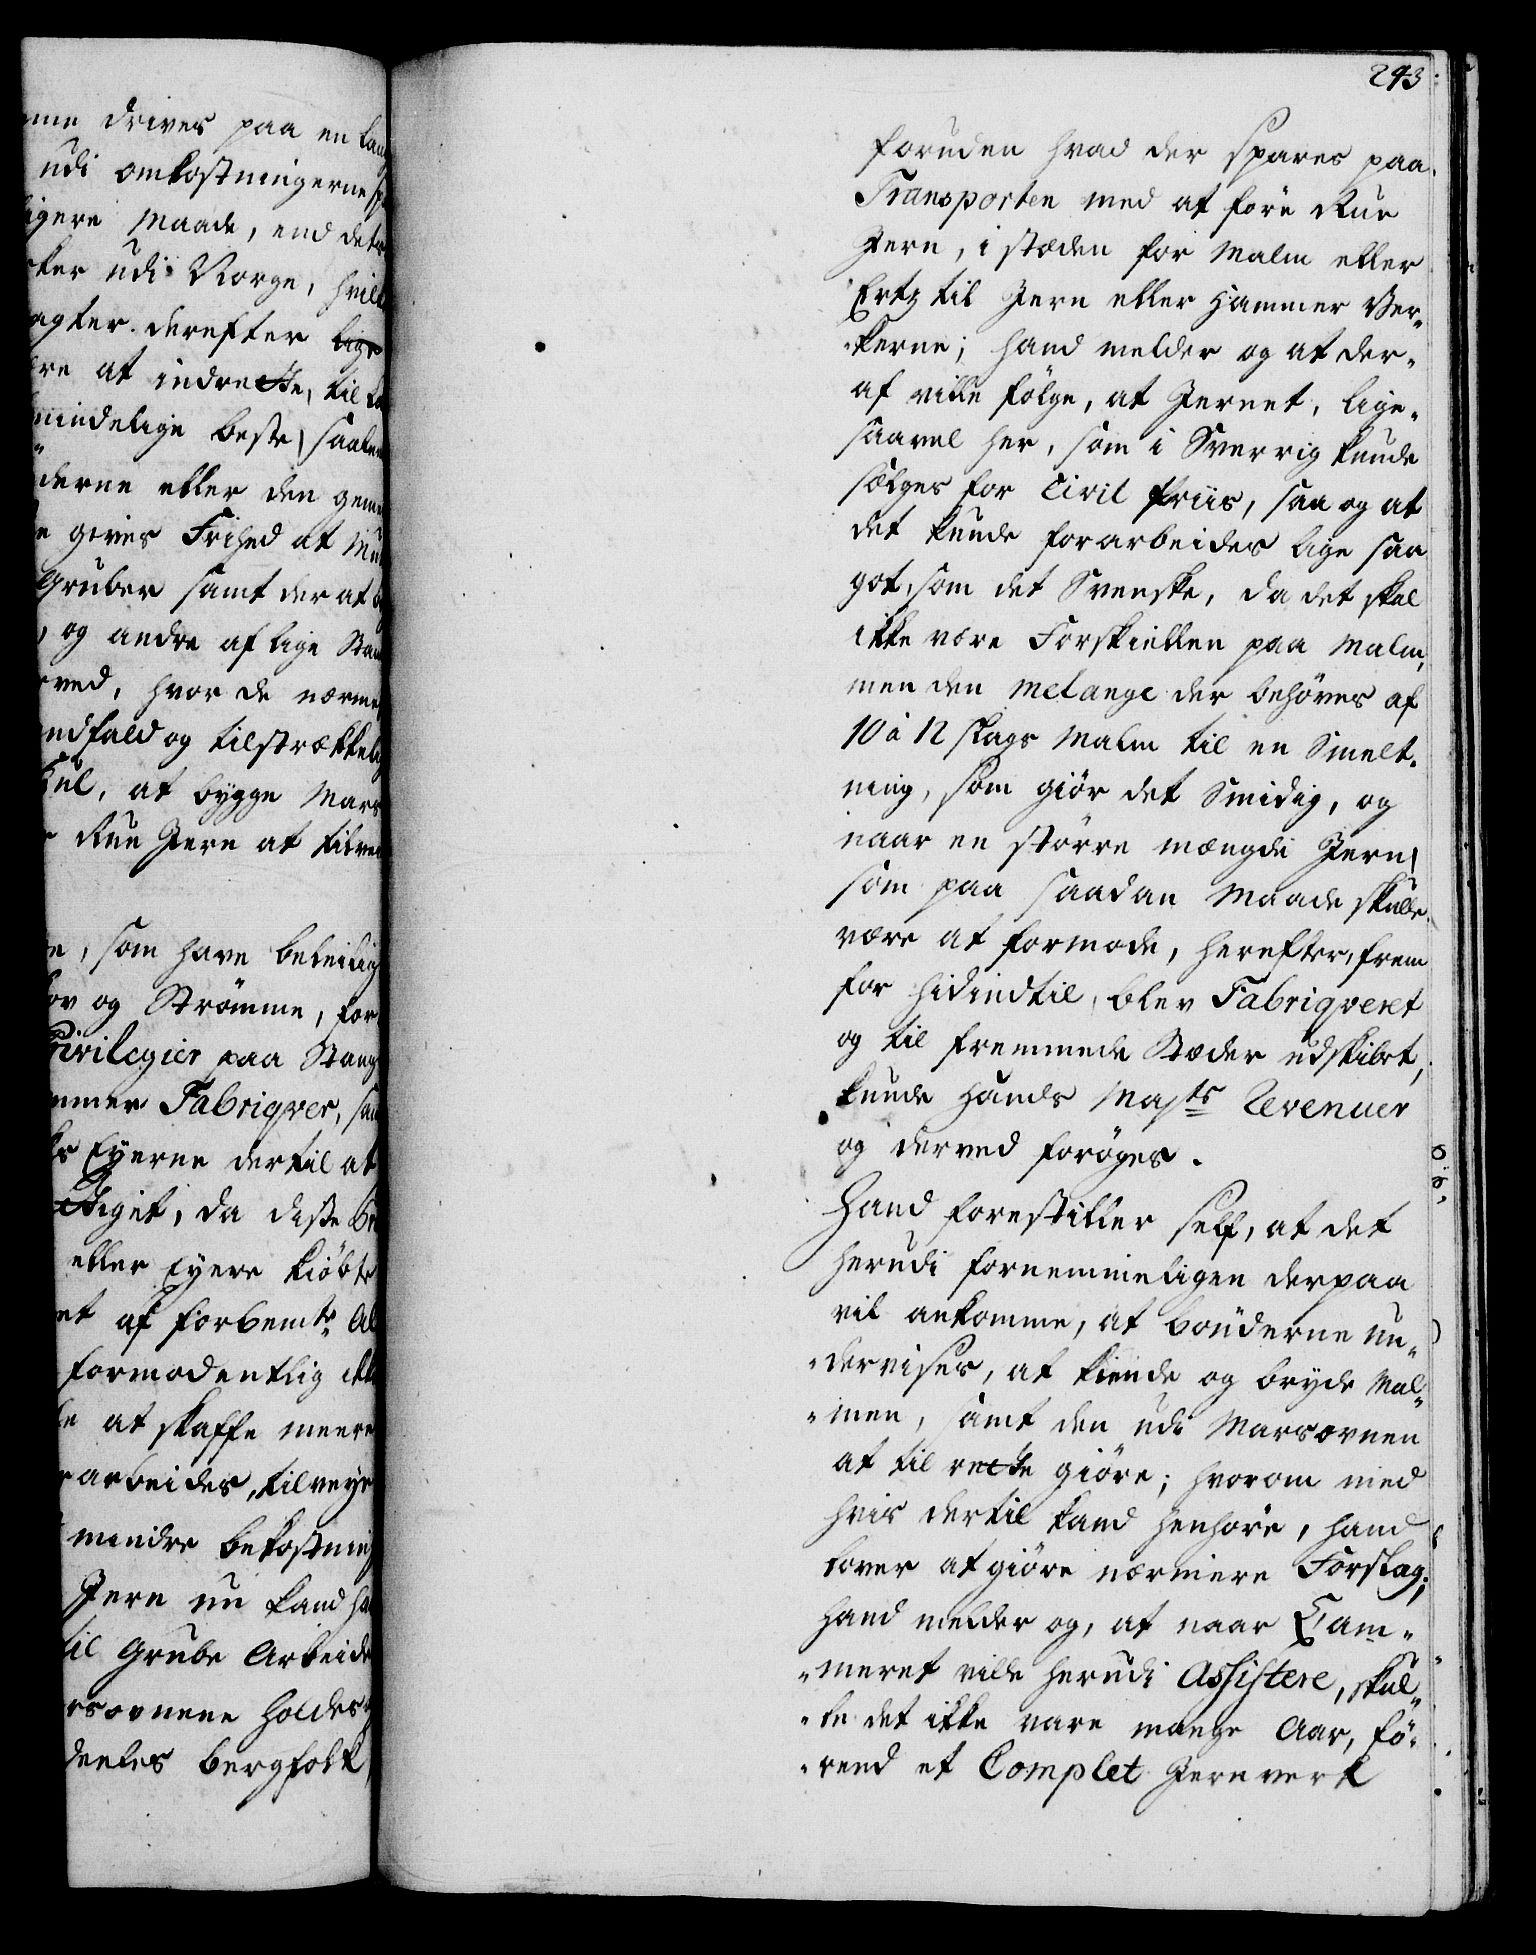 drives paa en
udi omkostningerne
Maade, end det
udi Norge,
derefter lige
at indrette, til
beste, saa
eller den
gives Frihed at
Gruber samt der at
og andre af lige
hvor de nærme
og tilstrækkelig
Kul, at bygge Mars
Rue Jern at
som have beleilig
og Strømme, for
Privilegier paa Stang
Fabriqver,
Eyerne dertil at
da disse
eller Eyere kiöbte
af forbemte
formodentlig ikke
at skaffe meere
arbeides, tilveye
mindre bekostning
Jern nu kand
til Grube Arbeide
holdes
deeles bergfolk
243
foruden hvad der spares paa
Transporten med at före Rue
Jern, i stæden for Malm eller
Ertz til Jern eller Hammer Ver„
„kerne; hand melder og at der„
af ville fölge, at Jernet, lige„
saavel her, som i Sverrig kunde
sælges for Civil Priis, saa og at
det kunde forarbeides lige saa
got, som det Svenske, da det skal
ikke være Forskiellen paa Malm,
men den melange der behöves af
10 à 12 slags Malm til en Smelt„
ning, som giör det Smidig, og
naar en större mængde Jern,
som paa saadan Maade skulle
være at formode, herefter, frem
for hidindtil, blev Fabriqveret
og til fremmede Stæder udskibet,
kunde Hands Maÿts Revenuer
og derved foröges.
Hand forestiller self, at det
herudi fornemmeligen derpaa
vil ankomme, at bönderne un„
„dervises, at kiende og bryde Mal„
„men, samt den udi Marsovnen
at til rette giöre; hvorom med
hvis dertil kand henhöre, hand
lover at giöre nærmere Forslag;
hand melder og, at naar Cam„
„meret ville herudi Assistere, skul„
„le det ikke vare mange Aar, fö„
„rend et Complet Jernverk